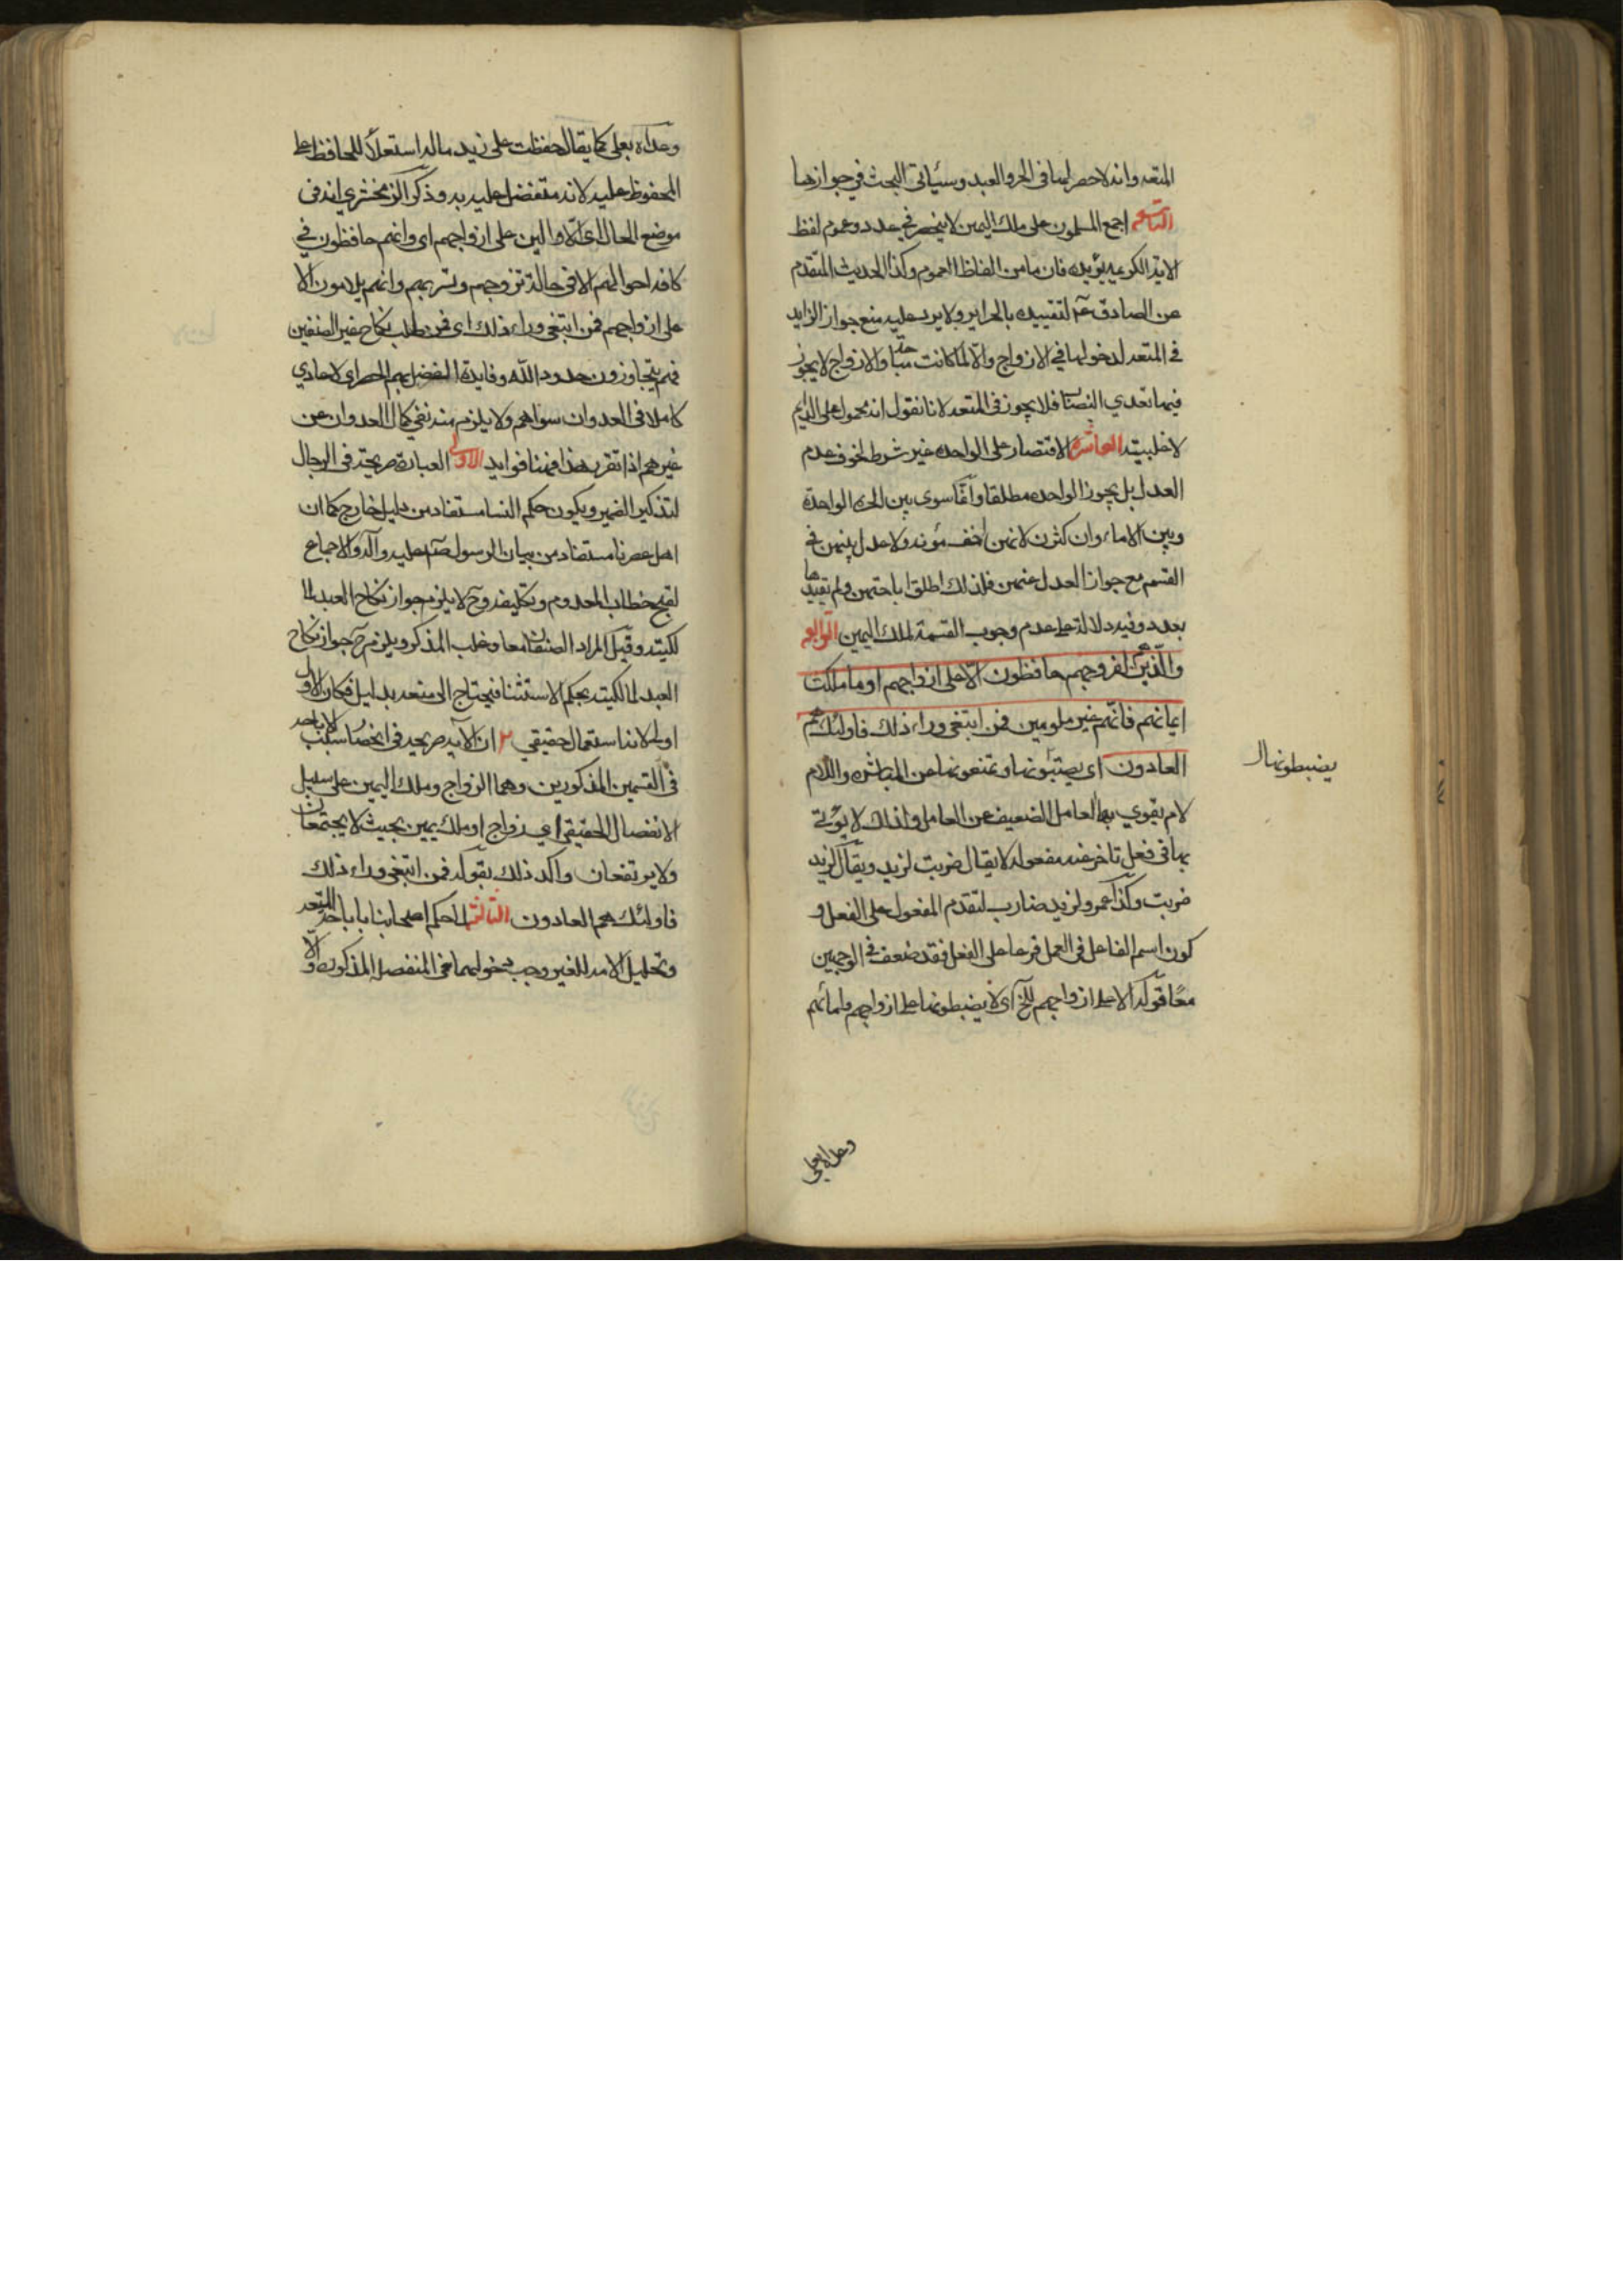 المتعه وانه لا حصر لها فى الحر والعبد وسيأتى البحث في جوازها
التاسعه اجمع المسلمون على ملك اليمين لا ينحصر في عدد وعموم لفظ
الاية الكريمه يؤيده فان ما من الفاظ العموم وكذا الحديث المتقدم
عن الصادق ع لتقييده بالحراير ولا يرد عليه منع جواز الزايد
في المتعه لدخولها في الازواج والا لما كانت مباحة والازواج لا يجوز
فيها تعدي النصاب فلا يجوز فى المتعه لانا نقول انه محمول على الدايم
لاغلبيته العاشره الاقتصار على الواحده غير شرط لخوف عدم
العدل بل يجوز الواحده مطلقا وانما سوى بين الحره الواحدة
وبين الاماء وان كثرن لانهن اخف مؤنه ولا عدل بينهن في
القسم مع جواز العدل عنهن فلذلك اطلق اباحتهن ولم يقيدها
بعدد وفيه دلالة على عدم وجوب القسمة لملك اليمين الرابعه
والذين هم لفروجهم حافظون الا على ازواجهم او ما ملكت
ايمانهم فانهم غير ملومين فمن ابتغى وراء ذلك فاولئك هم
العادون اى يصنونها ويمنعونها من المباشره واللام
لام يقوي بها العامل الضعيف عن العامل ولذلك لا يؤتى
بها فى فعل تاخر عنه مفعوله لا يقال ضربت لزيد ويقال لزيد
ضربت وكذا عمرو لزيد ضارب لتقدم المفعول على الفعل و
كون اسم الفاعل فى العمل فرعا على الفعل فقد ضعف في الوجهين
معا قوله الا على ازواجهم الخ اى لا يضبطونها على ازواجهم وامائهم
يضبطونها
وعداه بعلى
وعداه بعلى كما يقال حفظت على زيد ماله استعلاء للحافظ على
المحفوظ عليه لانه متفضل عليه به وذكر الزمخشري انه فى
موضع الحال اى الا والين على ازواجهم اى وانهم حافظون في
كافة احوالهم الا فى حالة تزوجهم وتسريهم وانهم يلامون الا
على ازواجهم فمن ابتغى وراء ذلك اى فمن طلب نكاح غير الصنفين
فهم يتجاوزون حدود الله وفايدة الفصل بهم الحصر اى لا عادي
كاملا فى العدوان سواهم ولا يلزم منه نفي كمال العدوان عن
غيرهم اذا تقرر هذا فهنا فوايد الاولى العبارة صريحة فى الرجال
لتذكير الضمير ويكون حكم النسا مستفاد من دليل خارج كما ان
اهل عصرنا مستفاد من بيان الرسول صلى الله عليه واله والاجماع
لقبح خطاب المعدوم وتكليفه وح لا يلزم جواز نكاح العبد لما
لكيته وقيل المراد الصنفان معا وغلب المذكر ويلزم ح جواز نكاح
العبد لمالكيته بحكم الاستثنا فيحتاج الى منعه بدليل فكان الاول
اولى لانه استعمال حقيقي ٢ ان الآيه صريحه فى انحصار سبب الاباحه
فى القسمين المذكورين وهما الزواج وملك اليمين على سبيل
الانفصال الحقيقي اي زواج او ملك يمين بحيث لا يجتمعان
ولا يرتفعان واكد ذلك بقوله فمن ابتغى وراء ذلك
فاولئك هم العادون الثالثه لما حكم اصحابنا باباحة المتعه
وتحليل الامه للغير وجب دخولهما فى المنفصله المذكوره والا